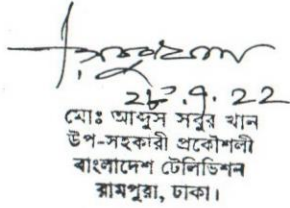 মোঃ আব্দুস সবুর খান
উপ-সহকারী প্রকৌশলী
বাংলাদেশ টেলিভিশন
রামপুরা, ঢাকা।